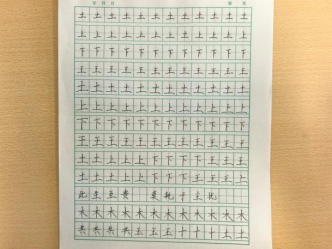 年 月 日 第 页
土 土 土 土 土 土 土 土 土 土 土 土
上 上 上 上 上 上 上 上 上 上 上 上
下 下 下 下 下 下 下 下 下 下 下 下
王 王 王 王 王 王 王 王 王 王 王 王
土 土 土 土 土 土 土 土 土 土 土 土
上 上 上 上 上 上 上 上 上 上 上 上
下 下 下 下 下 下 下 下 下 下 下 下
王 王 王 王 王 王 王 王 王 王 王 王
土 土 土 上 上 下 下 下 下 王 王 王
土 土 土 上 上 下 下 下 王 王 王 王
木 木 木 木 木 木 木 木 木 木 木 木
共 共 共 共 五 五 十 十 十 土 土